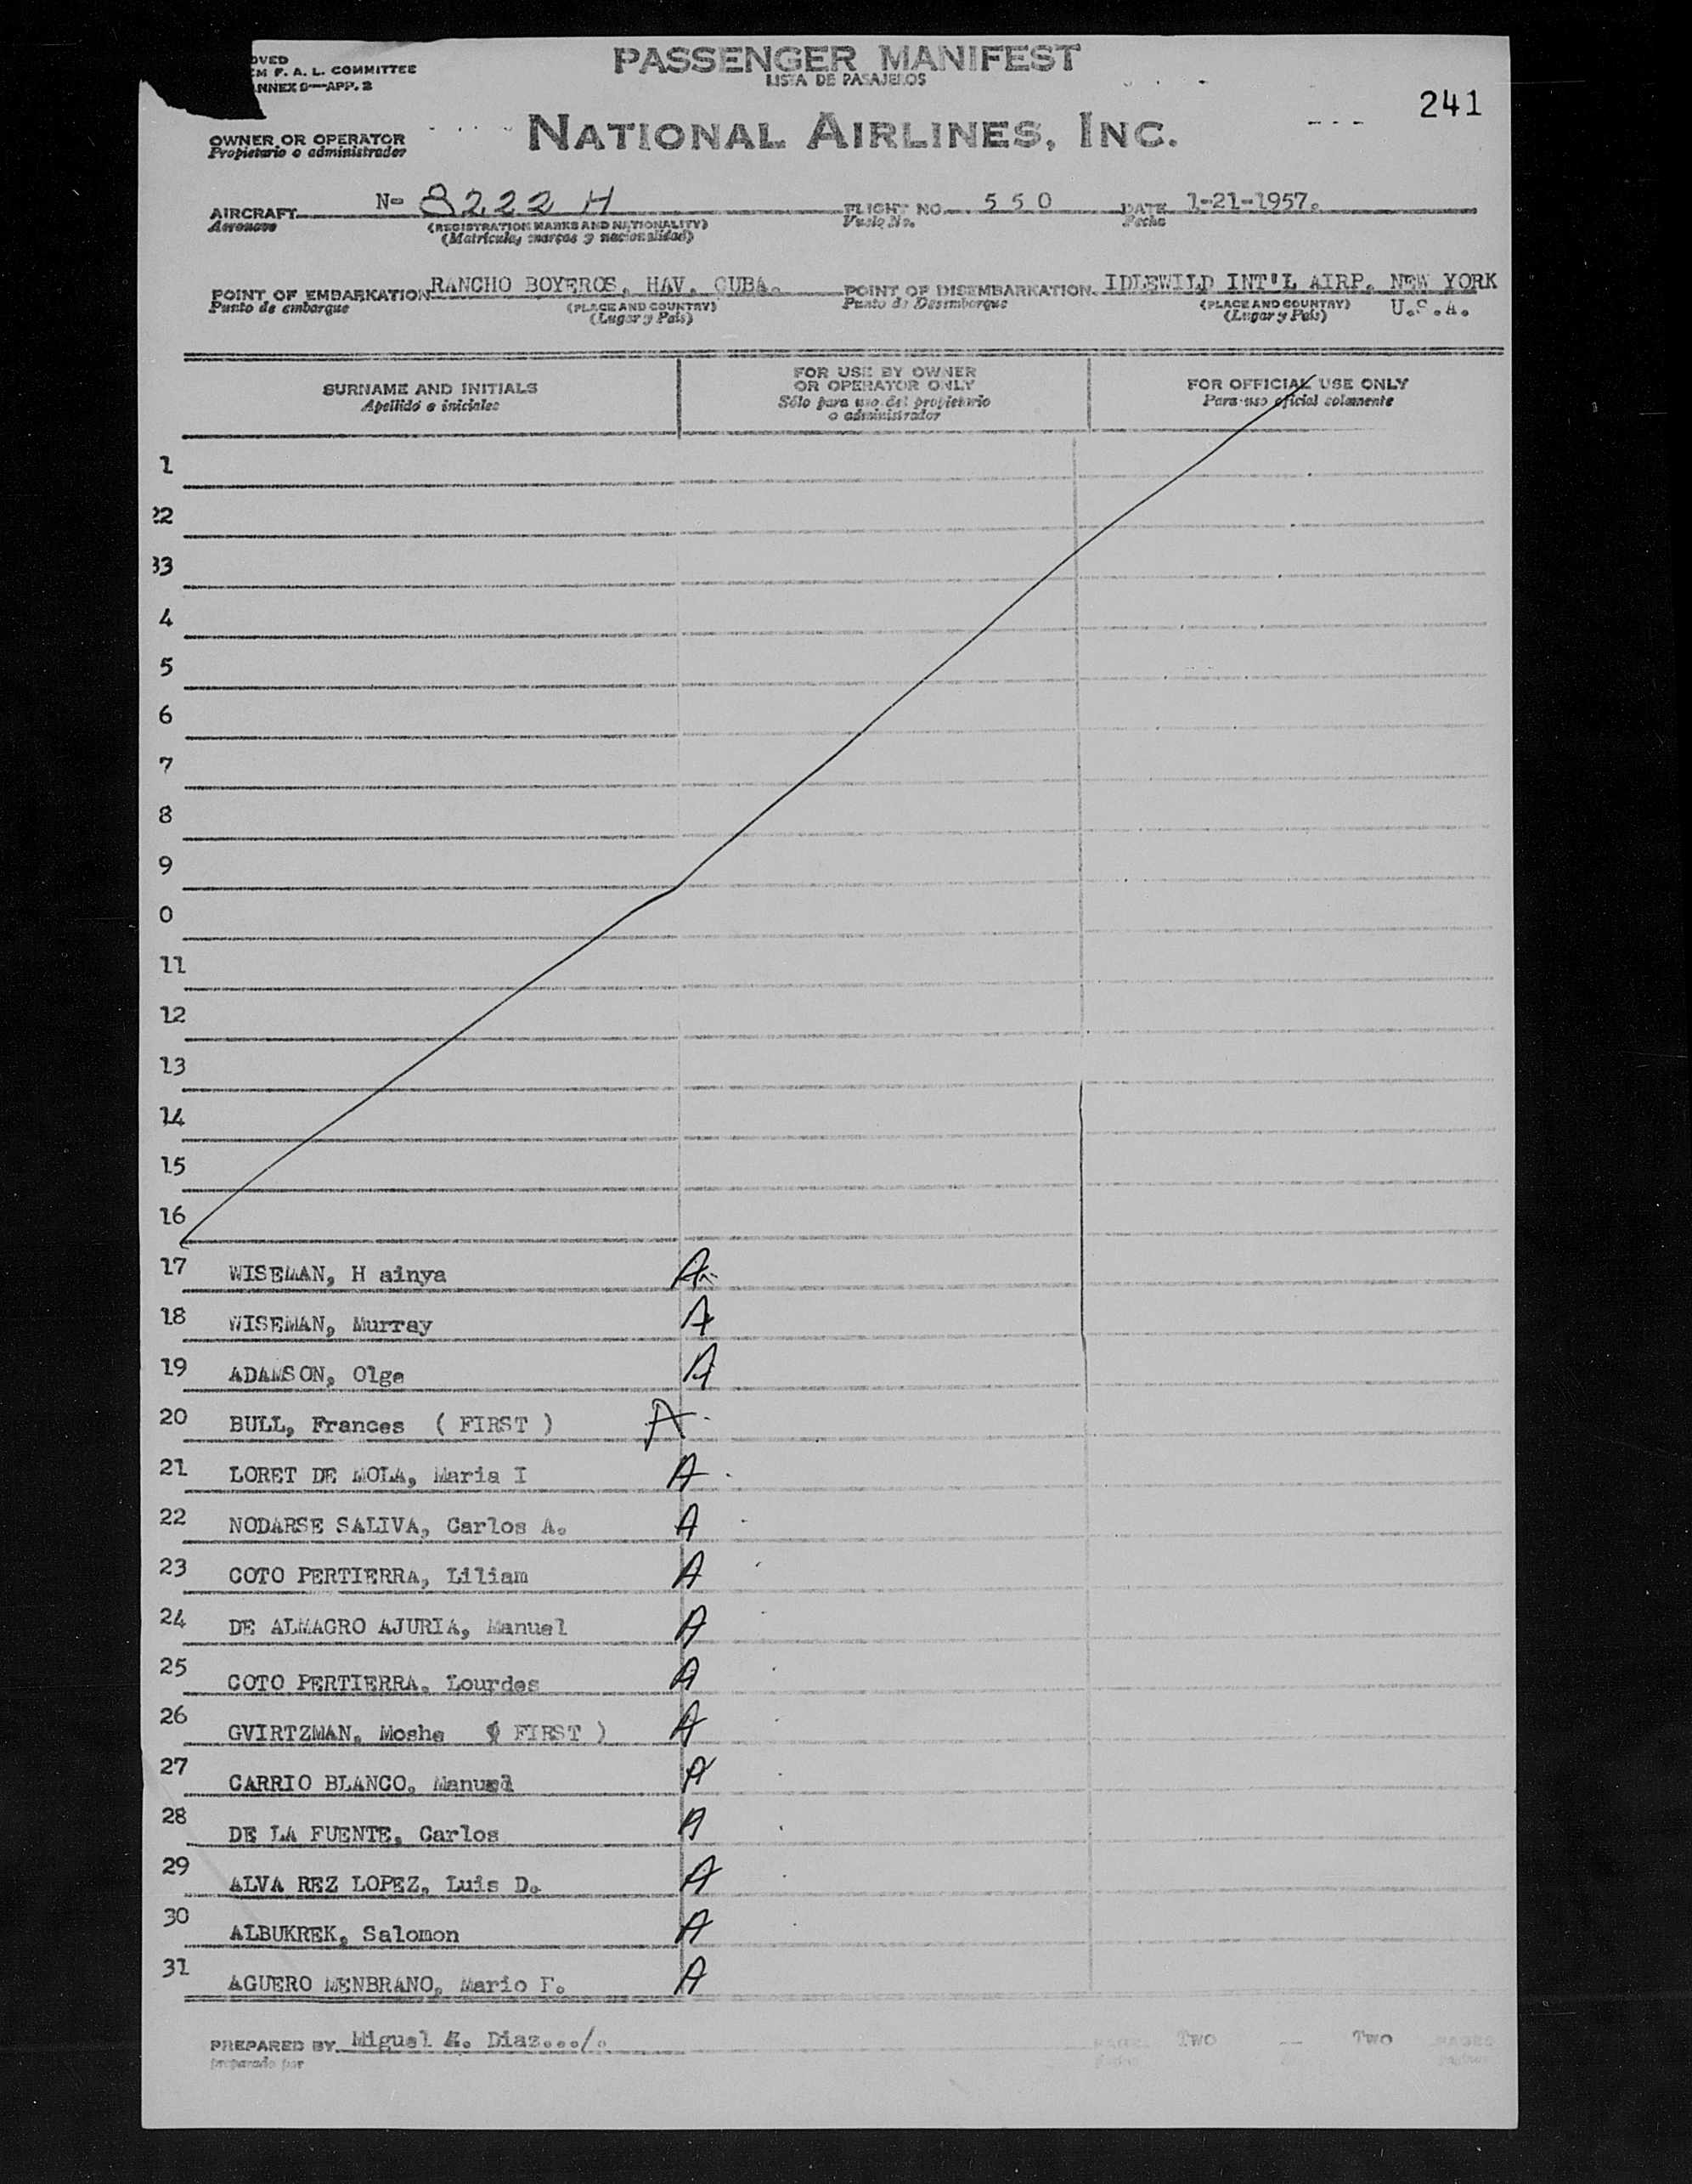 OVED
EM F. A. L. COMMITTEE
ANNEX 9—APP. 2
PASSENGER MANIFEST
LISTA DE PASAJEROS
241
OWNER OR OPERATOR
Propietario o administrador
NATIONAL AIRLINES, INC.
AIRCRAFT N- 8222 H FLIGHT NO. 5 5 0 DATE 1-21-1957.
Aeronave (REGISTRATION MARKS AND NATIONALITY) Vuelo No. Fecha
(Matricula, marcas y nacionalidad)
POINT OF EMBARKATION RANCHO BOYEROS, HAV. CUBA. POINT OF DISEMBARKATION IDLEWILD INT'L AIRP. NEW YORK
Punto de embarque (PLACE AND COUNTRY) Punto de Desembarque (PLACE AND COUNTRY) U.S.A.
(Lugar y País) (Lugar y País)
SURNAME AND INITIALS FOR USE BY OWNER OR OPERATOR ONLY FOR OFFICIAL USE ONLY
Apellido e iniciales Sólo para uso del propietario o administrador Para uso oficial solamente
1
22
33
4
5
6
7
8
9
0
11
12
13
14
15
16
17 WISEMAN, H ainya A
18 WISEMAN, Murray A
19 ADAMSON, Olge A
20 BULL, Frances ( FIRST ) A
21 LORET DE MOLA, Maria I A
22 NODARSE SALIVA, Carlos A. A
23 COTO PERTIERRA, Liliam A
24 DE ALMAGRO AJURIA, Manuel A
25 COTO PERTIERRA. Lourdes A
26 GVIRTZMAN. Moshe ( FIRST ) A
27 CARRIO BLANCO. Manuel A
28 DE LA FUENTE. Carlos A
29 ALVA REZ LOPEZ, Luis D. A
30 ALBUKREK, Salomon A
31 AGUERO MENBRANO, Mario F. A
PREPARED BY Miguel A. Diaz.../. PAGE Two -- Two PAGES
preparado por